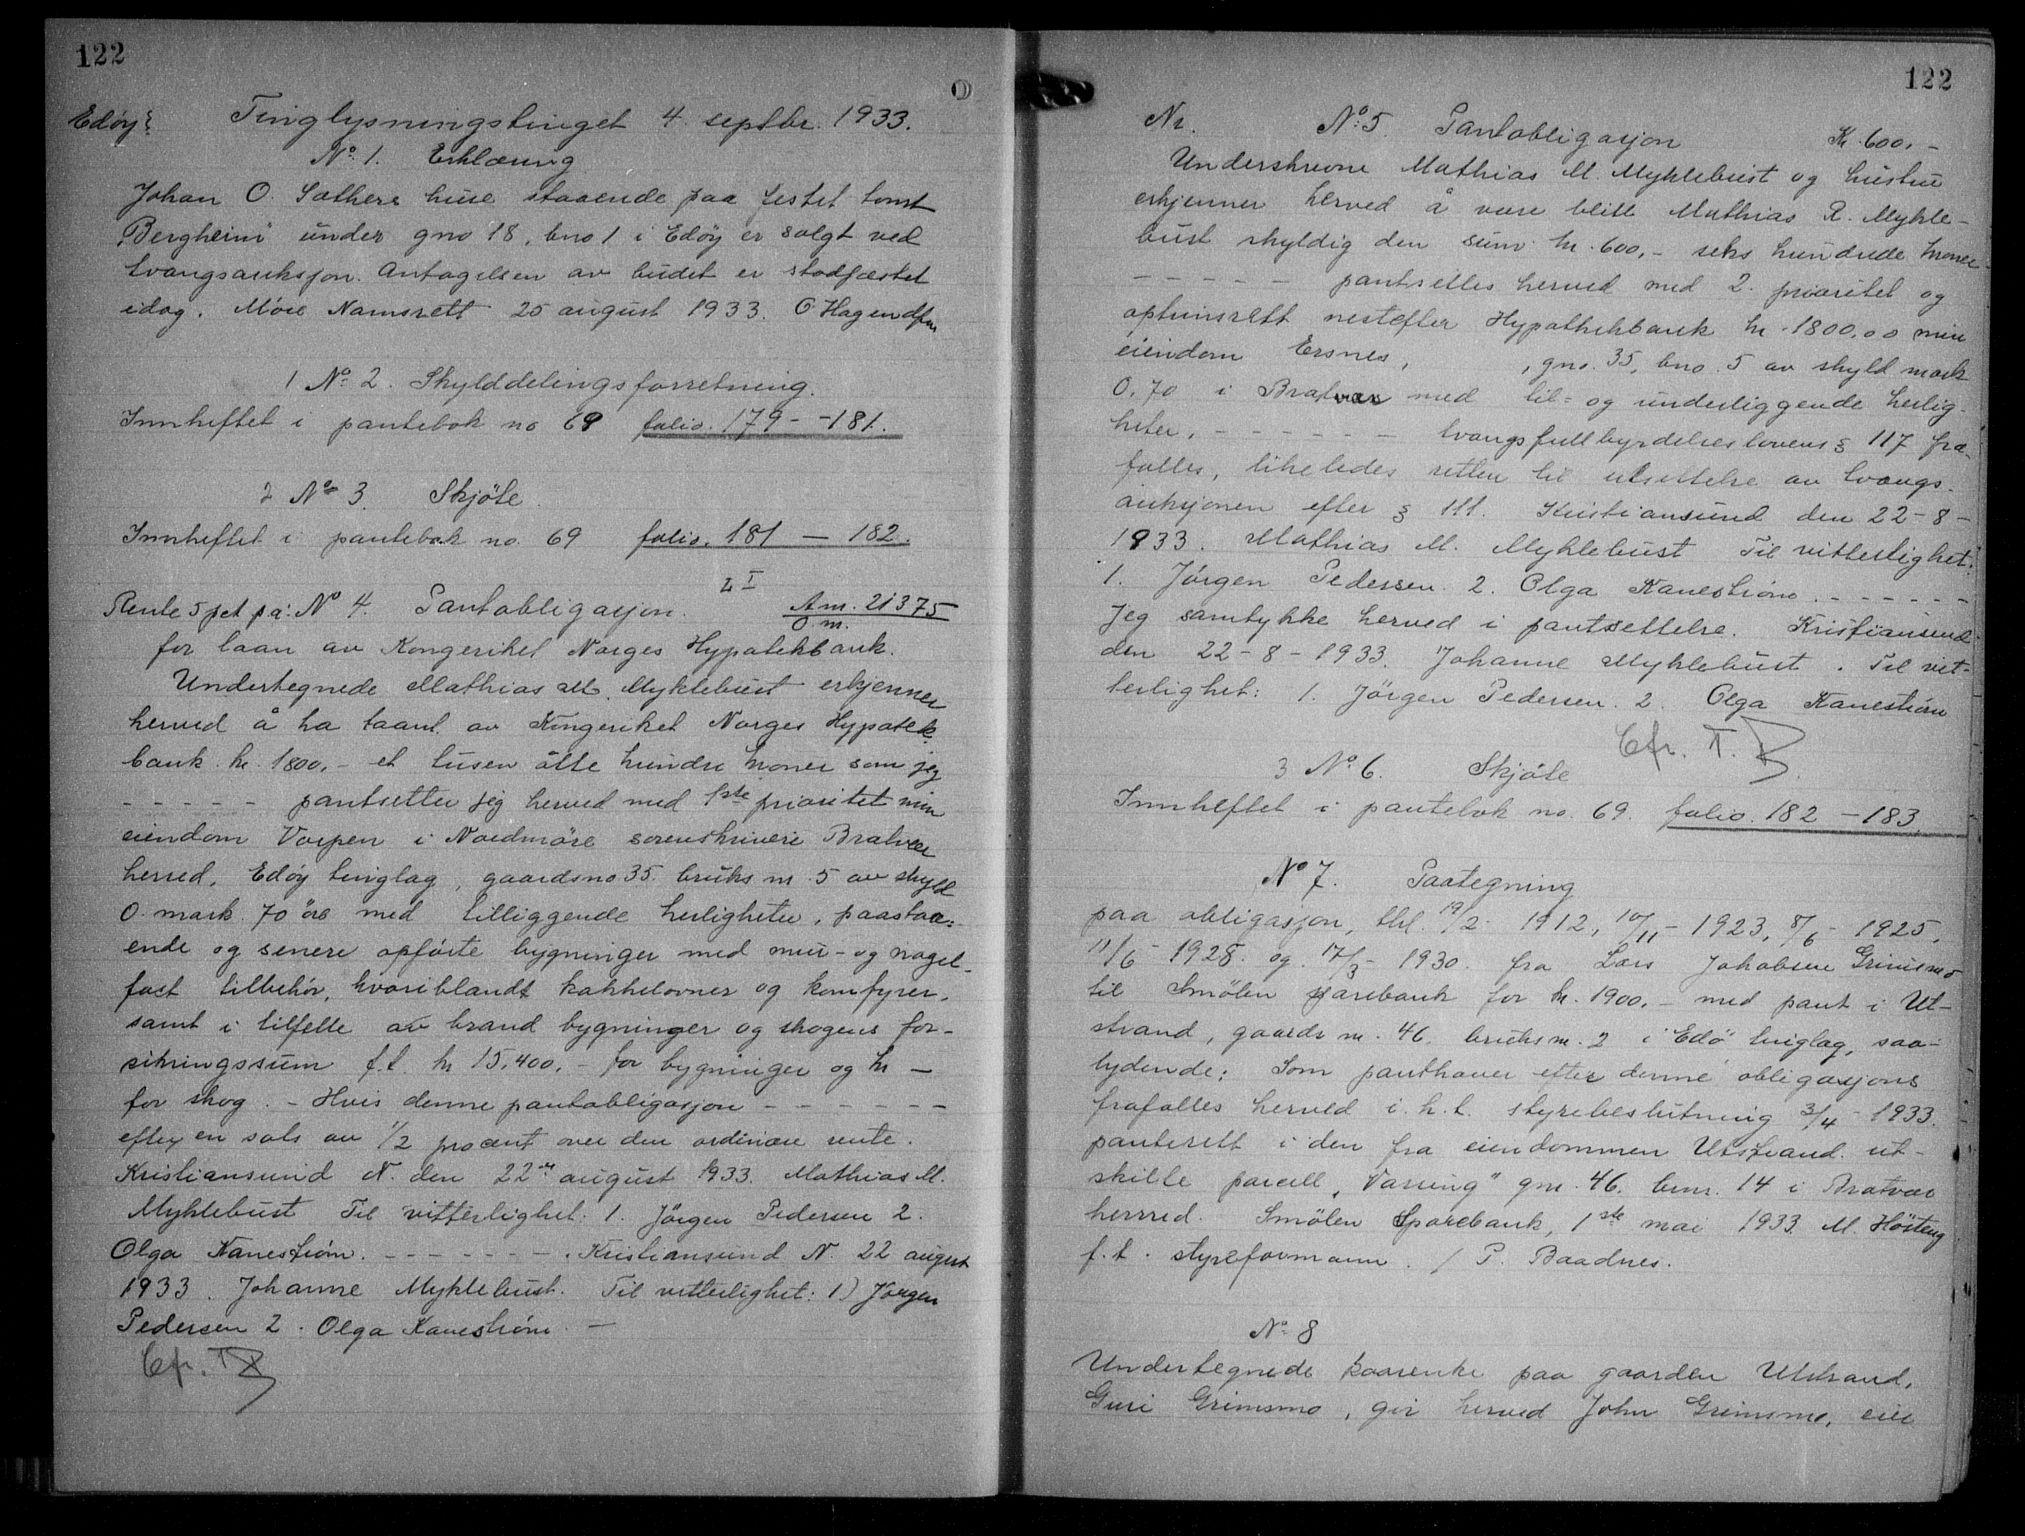 122
Edøy: Tinglysningstinget 4. septbr. 1933.
No. 1. Erklæring
Johan O. Sæthers huse staaende paa festet tomt
"Bergheim" under gno 18, bno 1 i Edøy er solgt ved
tvangsauksjon. Antagelsen av budet er stadfæstet
idag. Möre Namsrett 25 august 1933. O Hagen dfm
1 No. 2. Skylddelingsforretning.
Innheftet i pantebok no 69 folio. 179 - -181.
2 No 3. Skjöte.
Innheftet i pantebok no. 69 folio. 181 — 182.
Rente 5 pct pa: No 4. Pantobligasjon. L I Am. 21375
O. m.
for laan av Kongeriket Norges Hypotekbank.
Undertegnede Mathias M. Myklebust erkjenner
herved å ha laant av Kongeriket Norges Hypotek-
bank kr. 1800,- et tusen åtte hundre kroner som jeg
- - - - - pantsetter jeg herved med 1ste prioritet min
eiendom Vorpen i Nordmöre sorenskriveri Bratvær
herred, Edøy tinglag, gaardsno 35. bruks nr 5 av skyld
0. mark 70 öre med tilliggende herligheter, paastaa-
ende og senere opførte bygninger med mur- og nagel-
fast tilbehör, hvoriblandt kakkelovner og komfyrer,
samt i tilfelle av brand bygninger og skogens for-
sikringssum f.t. kr 15,400,- for bygninger og kr —
for skog. - Hvis denne pantobligasjon - - - - - -
efter en sats av 1/2 procent over den ordinære rente.
Kristiansund N. den 22nd august 1933. Mathias M.
Myklebust Til vitterlighet: 1. Jörgen Pedersen 2.
Olga Kanestrøm. - - - - - - - . Kristiansund N. 22 august
1933. Johanne Myklebust. Til vitterlighet: 1) Jörgen
Pedersen 2. Olga Kanestrøm. —
Cfr. T B
122
Nr. No. 5. Pantobligasjon Kr. 600,-
Underskrevne Mathias M. Myklebust og hustru
erkjenner herved å være blitt Mathias R. Mykle-
bust skyldig den sum kr. 600,- seks hundrede kroner
- - - - - pantsettes herved med 2. prioritet og
optrinsrett nestefter Hypothekbank kr. 1800.00 min
eiendom Ersnes, , gno. 35, bno. 5 av skyld mark
0,70 i Bratvær med til- og underliggende herlig-
heter, - - - - - - tvangsfullbyrdelseslovens § 117 fra-
falles, likeledes retten til utsettelse av tvangs-
auksjonen efter § 111. Kristiansund den 22-8-
1933. Mathias M. Myklebust Til vitterlighet:
1. Jörgen Pedersen. 2. Olga Kanestrøm. - - - - - -
Jeg samtykke herved i pantsettelse. Kristiansund
den 22-8-1933. Johanne Myklebust. Til vit-
terlighet: 1. Jörgen Pedersen. 2. Olga Kanestrøm
Cfr. T. B.
3 No. 6. Skjöte
Innheftet i pantebok no. 69. folio. 182 - 183.
No 7. Paategning
paa obligasjon, tbl. 19/2- 1912, 10/11- 1923, 8/6- 1925,
11/6- 1928. og 17/3- 1930. fra Lars Jakobsen Grimsmo
til Smølen sparebank for kr. 1900,- med pant i Ut-
strand, gaards nr. 46. bruksnr. 2 i Edö tinglag, saa-
lydende: Som panthaver efter denne obligasjons
frafalles herved i. h. t. styrebeslutning 3/4- 1933.
panterett i den fra eiendommen Utstrand ut-
skilte parcell "Varung" gnr. 46. bnr. 14 i Bratvær
herred. Smölen Sparebank, 1ste mai 1933. M. Hösteng
f. t. styreformann. / P. Baadnes.
No. 8
Undertegnede kaarenke paa gaarden Utstrand,
Guri Grimsmo, gir herved John Grimsmo, eier